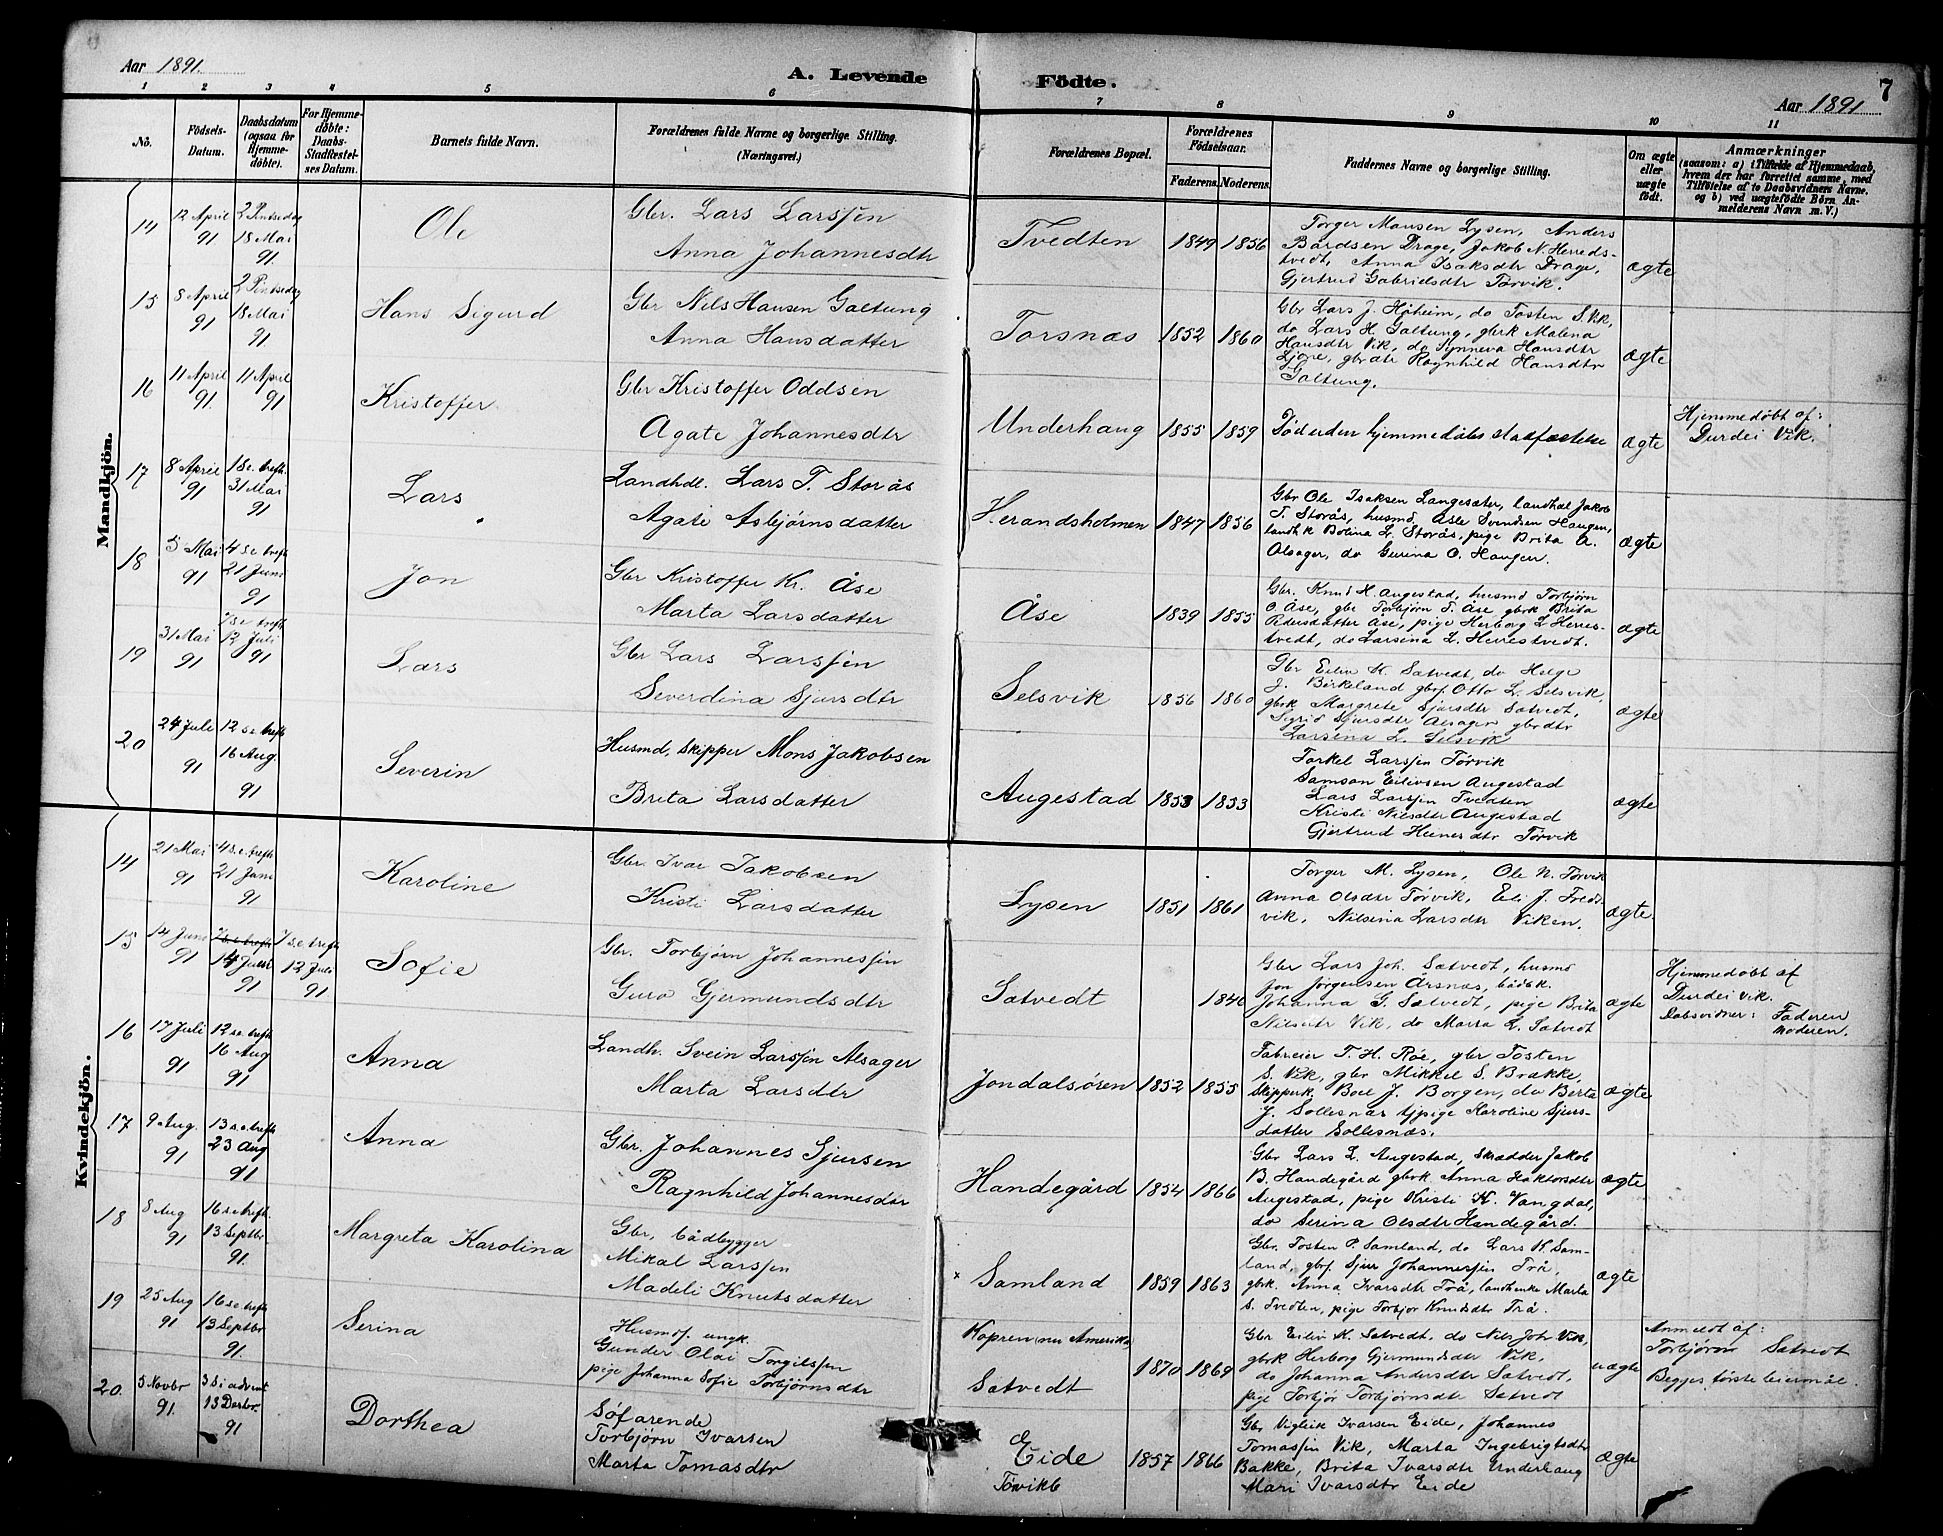 Aar 1891.
A. Levende Födte.
7
Aar 1891
1 2 3 4 5 6 7 8 9 10 11
No.
Födsels-Datum.
Daabsdatum (ogsaa for Hjemmedöbte).
For Hjemmedöbte: Daabs-Stadfæstelses Datum.
Barnets fulde Navn.
Forældrenes fulde Navne og borgerlige Stilling.
(Næringsvei.)
Forældrenes Bopæl.
Forældrenes Födselsaar.
Faderens. Moderens.
Faddernes Navne og borgerlige Stilling.
Om ægte eller uægte födt.
Anmærkninger
(saasom: a) i Tilfælde af Hjemmedaab,
hvem der har forrettet samme, med
Tilföielse af to Daabsvidners Navne.
og b) ved uægtefödte Börn Anmelderens Navn m. V.)
Mandkjön.
14
12 April 91
2 Pintsedag 18 Mai 91
Ole
Gbr. Lars Larssen
Anna Johannesdtr
Tvedten
1849 1856
Torger Monsen Lysen, Anders
Bårdsen Drage, Jakob N. Herreds-
tvedt, Anna Isaksdtr Drage,
Gjertrud Gabrielsdtr Torvik.
ægte
15
8 April 91
2 Pintsedag 18 Mai 91
Hans Sigurd
Gbr Nils Hansen Galtung
Anna Hansdatter
Torsnæs
1852 1860
Gbr Lars J. Høheim, do Tosten S. Vik,
do Lars H. Galtung, gbrk Malena
Hansdtr Vik, do Synneva Hansdtr
Ljone, gbrdtr Ragnhild Hansdtr
Galtung.
ægte
16
11 April 91.
11 April 91
Kristoffer
Gbr Kristoffer Oddsen
Agate Johannesdtr
Underhaug
1855 1859
Død uden hjemmedåbs stadfæstelse
ægte
Hjemmedøbt af:
Durdei Vik.
17
8 April 91
1 S.e. trefh. 31 Mai 91
Lars
Landhdl. Lars T. Storås
Agate Asbjørnsdatter
Herandsholmen
1847 1856
Gbr Ole Isaksen Langesæter, landhdl Jakob
T. Storås, husmd. Asle Svendsen Haugen,
landhk Botina L. Storås, pige Brita A.
Alsager, do Gurina O. Haugen.
ægte
18
5 Mai 91
4 s.e. trefh 21 Juni 91
Jon
Gbr Kristoffer Kr. Åse
Marta Larsdatter
Åse
1839 1855
Gbr. Knud H. Augestad, husmd Torbjørn
O. Åse, gbr Torbjørn T. Åse gbrk Brita
Pedersdatter Åse, pige Herborg L. Herres-
tvedt, do Larsina L. Herrestvedt.
ægte
19
31 Mai 91
7 s.e. trefh 12 Juli 91
Lars
Gbr Lars Larssen
Severdina Sjursdtr
Selsvik
1856 1860
Gbr Eiliv K. Sætvedt, do Helge
J. Birkeland gbrf. Otto L. Selsvik,
gbrk Margrete Sjursdtr Sætvedt,
Sigrid Sjursdtr Alsager gbrdtr
Larsina L. Selsvik
ægte
20
24 Juli 91
12 s.e. trefh 16 Aug. 91
Severin
Husmd, skipper Mons Jakobsen
Brita Larsdatter
Augestad
1853 1853
Torkel Larssen Torvik
Samson Eilivsen Augestad
Lars Larssen Tvedten
Kristi Nilsdtr Augestad
Gjertrud Heinesdtr Torvik
ægte
Kvindekjön.
14
21 Mai 91
4 s.e. trefh 21 Juni 91
Karoline
Gbr. Ivar Jakobsen
Kristi Larsdatter
Lysen
1851 1861
Torger M. Lysen, Ole N. Torvik
Anna Olsdtr Torvik, Eli J. Freds-
vik, Nilsina Larsdtr Viken.
ægte.
15
14 Juni 91
14 Juni 91
7 s.e. trefh 12 Juli 91
Sofie
Gbr. Torbjørn Johannessen
Guro Gjermundsdtr
Sætvedt
1846
Gbr Lars Joh. Sætvedt, husmd
Jon Jørgensen Årsnæs, bådbk.
Johanna G. Sætvedt, pige Brita
Nilsdtr Vik, do Marta L. Sætvedt
ægte
Hjemmedøbt af
Durdei Vik.
Dabsvidner: Faderen
Moderen.
16
17 Juli 91
12 s.e. trefh 16 Aug 91
Anna
Landh. Svein Larssen Alsager
Marta Larsdtr
Jondalsøren
1852 1855
Fabreier T. H. Røe, gbr Tosten
S. Vik, gbr Mikkel S. Brakke,
Skipperk. Boel J. Borgen, do Berta
J. Sollesnæs tjpige Karoline Sjurs-
datter Sollesnæs.
ægte
17
9 Aug. 91
13 s.e. trefh 23 Aug 91
Anna
Gbr. Johannes Sjursen
Ragnhild Johannesdtr
Handegård
1854 1866
Gbr Lars L. Augestad, Skrædder Jakob
B. Handegård gbrk Anna Haktorsdtr
Augestad, pige Kristi K. Vangdal,
do Serina Olsdtr Handegård.
ægte
18
8 Aug 91
16 s.e. trefh. 13 Septbr 91.
Margreta Karolina
Gbr, bådbygger
Mikal Larssen
Madeli Knutsdatter
x Samland
1859 1863
Gbr. Tosten P. Samland, do Lars K. Sam-
land, gbrf. Sjur Johannessen Trå,
gbrk. Anna Ivarsdtr Trå, landhenke Marta
S. Tvedten, pige Torbjor Knudsdtr Trå.
ægte
19
25 Aug 91
16 s.e. trefh 13 Septbr 91.
Serina
Husmsf. ungk.
Gunder Olai Torgilssen
pige Johanna Sofie Torbjørnsdtr
Kopren (nu Amerika)
Sætvedt
1870 1869
Gbr Eiliv K. Sætvedt, do Nils Joh Vik,
gbrk Herborg Gjermundsdtr Vik,
do Johanna Andersdtr Sætvedt,
pige Torbjør Torbjørnsdtr Sætvedt
uægte
Anmeldt af:
Torbjørn Sætvedt
Begges første leiermål.
20.
5 Novbr 91.
3 S i advent 13 Decbr. 91
Dorthea
Søfarende
Torbjørn Ivarsen
Marta Tomasdtr
Eide
Torvikb
1857 1866
Gbr Vigleik Ivarsen Eide, Johannes
Tomassen Vik, Marta Ingebrigtsdtr
Bakke, Brita Ivarsdtr Underhaug
Mari Ivarsdtr Eide
ægte